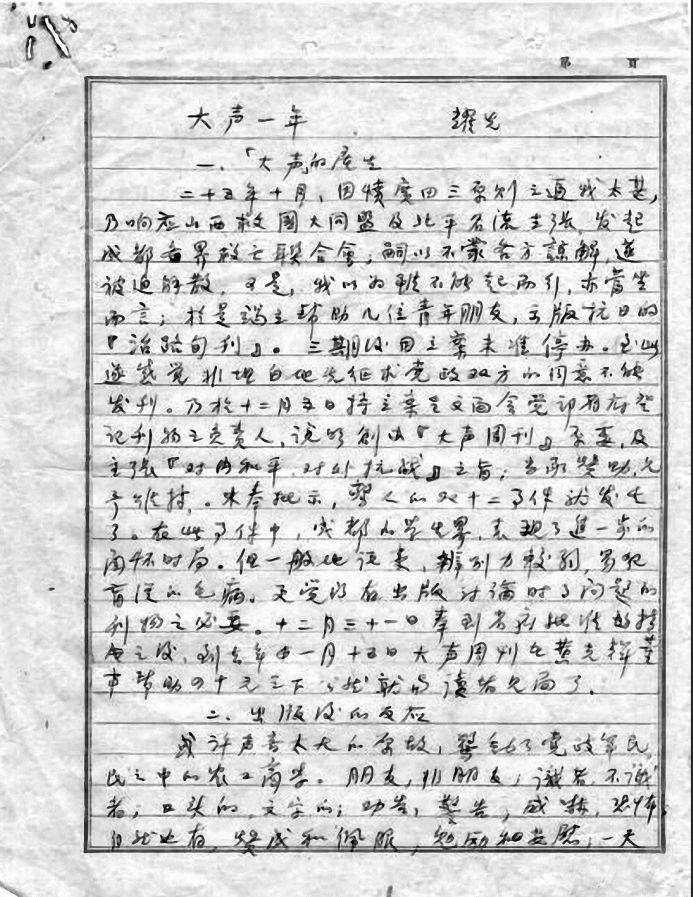 第 頁
大声一年 耀先
一、「大声」的产生
二十五年十月，因愤广田三原则之逼我太甚，
乃响应山西救国大同盟及北平名流主张，发起
成都各界救亡联合会，嗣以不蒙各方谅解，遂
被迫解散。于是，我以为既不能起而行，亦当坐
而言；于是鸿主帮助几位青年朋友，出版抗日的
『活路旬刊』。三期后因立案未准停办。至此
遂感觉非坦白地先征求党政双方的同意不能
发刊。乃于十二月五日持立案呈文面会党部省府登
记刊物之负责人，说明创办『大声周刊』原委，及
主张『对内和平，对外抗战』之旨；当承赞助，允
予维持。未奉批示，惊人的双十二事件就发生
了。在此事件中，成都的学生界，表现了进一步的
关怀时局。但一般地说来，辨别力较弱，易犯
盲从的毛病。更觉得有出版讨论时事问题的
刊物之必要。十二月三十一日奉到省府批准
之后，到去年由一月十五日大声周刊在黄先辉
帮助四十元之下公然就与读者见面了。
二、出版后的反应
或许声音太大的原故，惊动了党政军民，
民之中的农工商学。朋友，非朋友；识者，不识
者；口头的，文字的；劝告，警告，威吓，
自然也有，赞成和佩服，勉励和安慰，一天